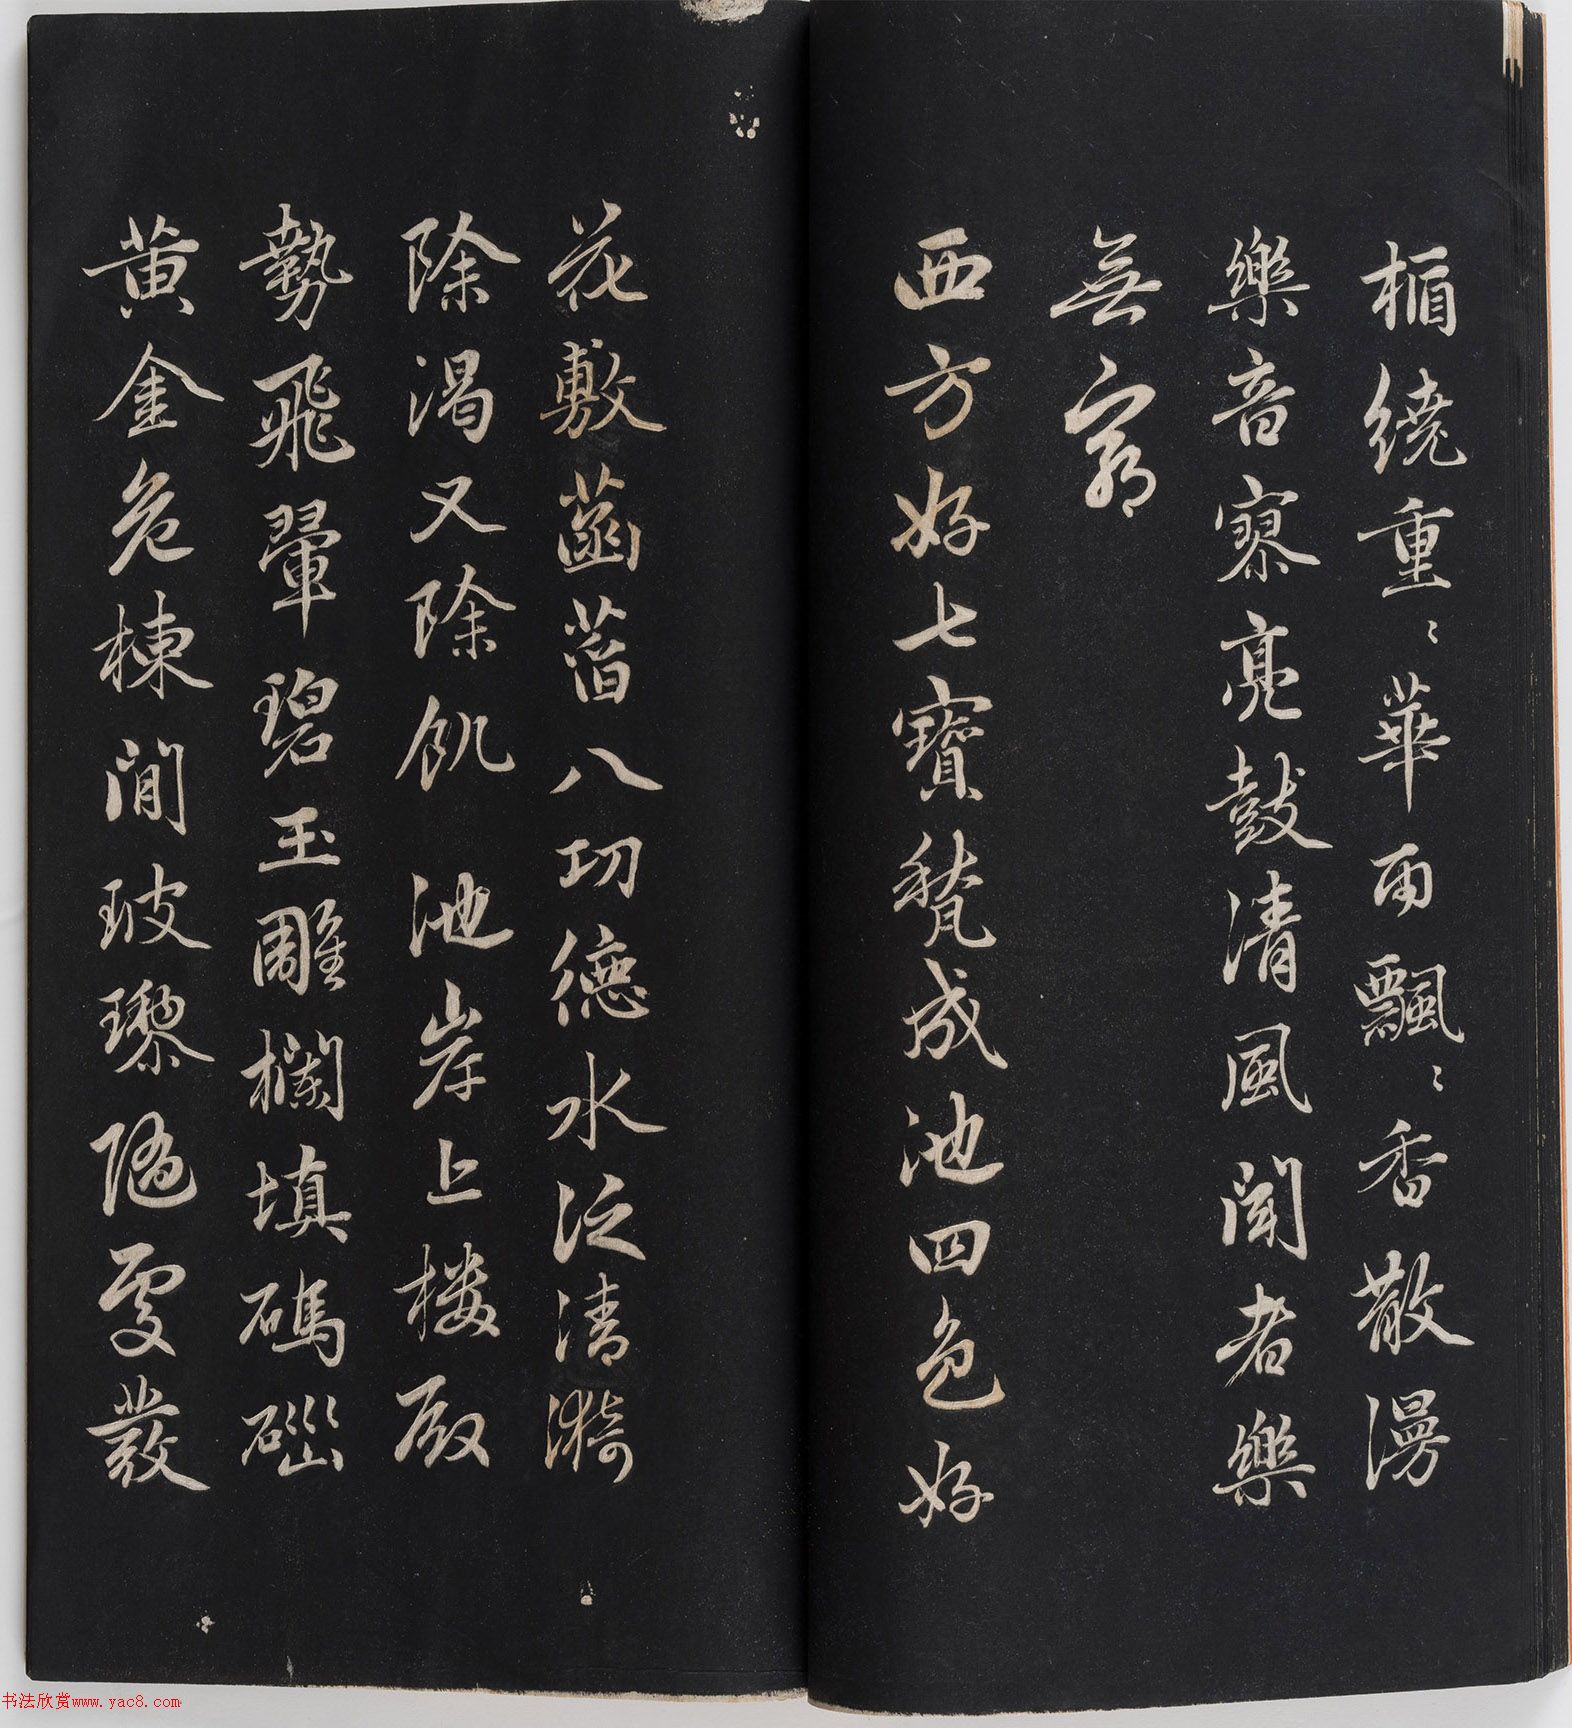 楯繞重〻華雨飄〻香散漫
樂音寥亮鼓清風聞者樂
無窮
西方好七寶甃成池四色好
花敷菡萏八功德水泛清漪
除渴又除飢 池岸上樓殿
勢飛翬碧玉雕欄填碼碯
黃金危棟間玻瓈隨處發
书法欣赏www.yac8.com